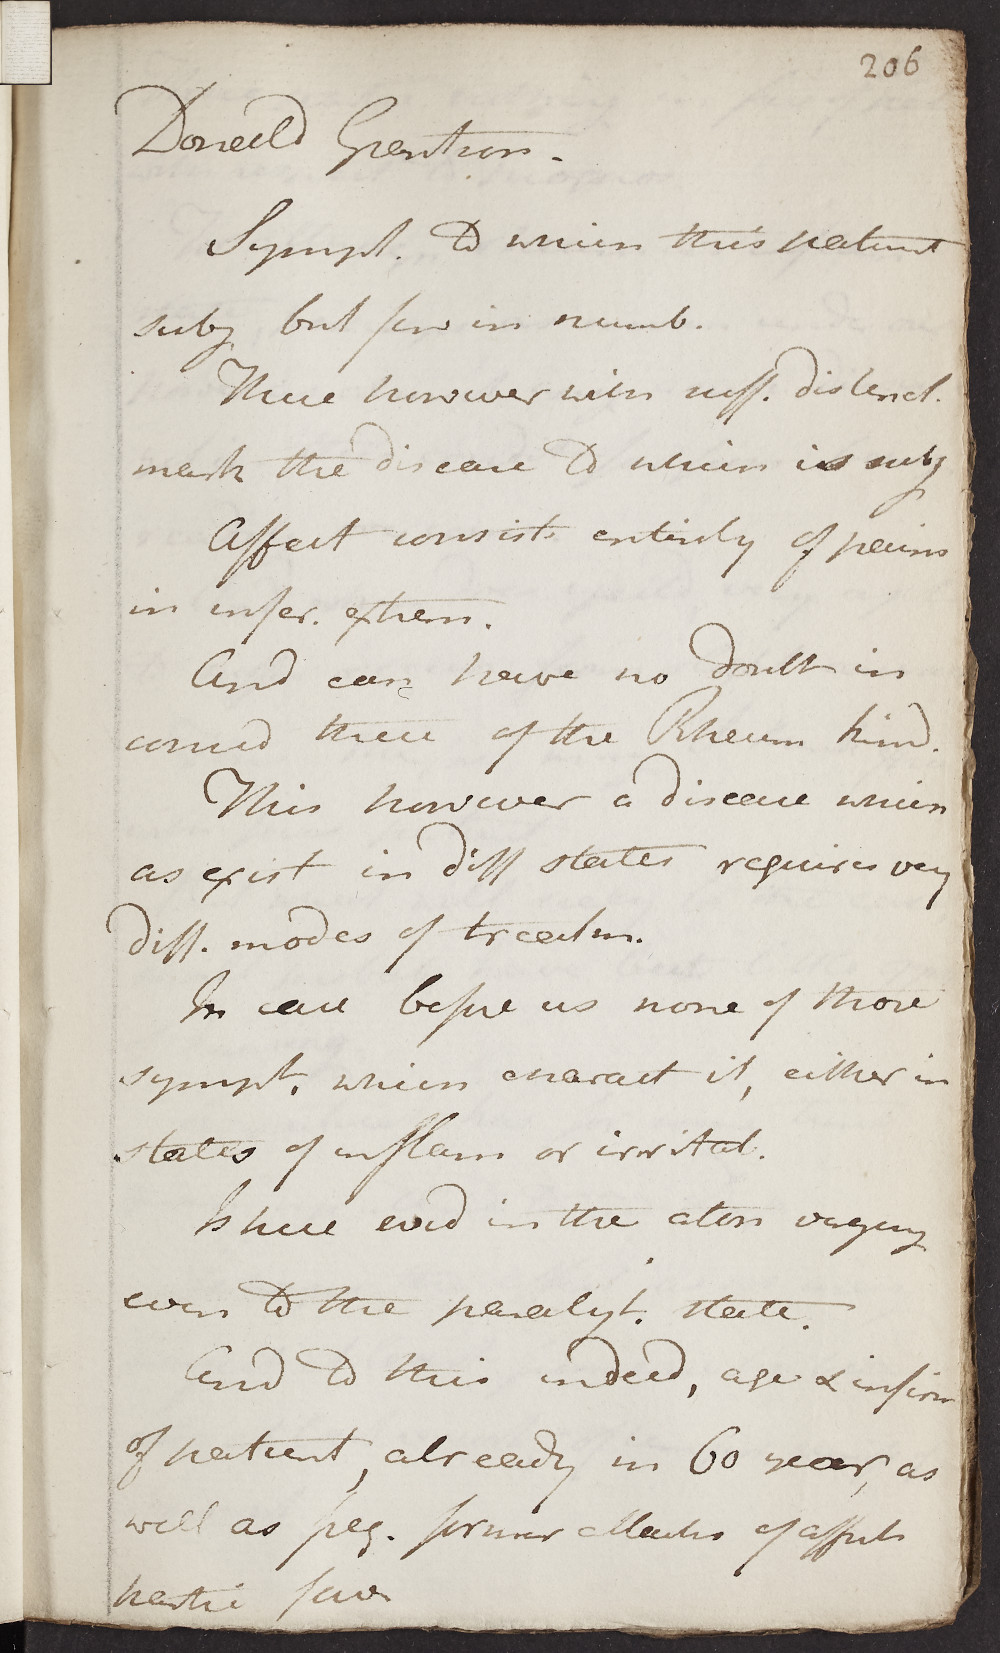 206
Donald
Sympt. to which this patient
subj but few in numb.
These however with suff. distinct.
mark the disease to which is subj
Affect consists entirely of pains
in infer. extrem.
And can have no doubt in
consid these of the Rheum kind.
This however a disease which
as exist in diff states requires very
diff. modes of treatm.
In case before us none of those
sympt. which charact it, either in
states of inflam or irritat.
Is here evid in the aton verging
even to the paralyt. state.
And to this indeed, age & infirm
of patient, already in 60 year, as
well as freq. former attacks of affect
partic fav